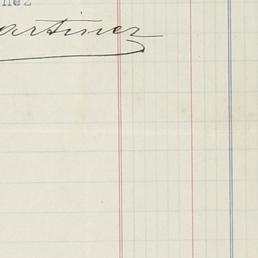 nez
artinez